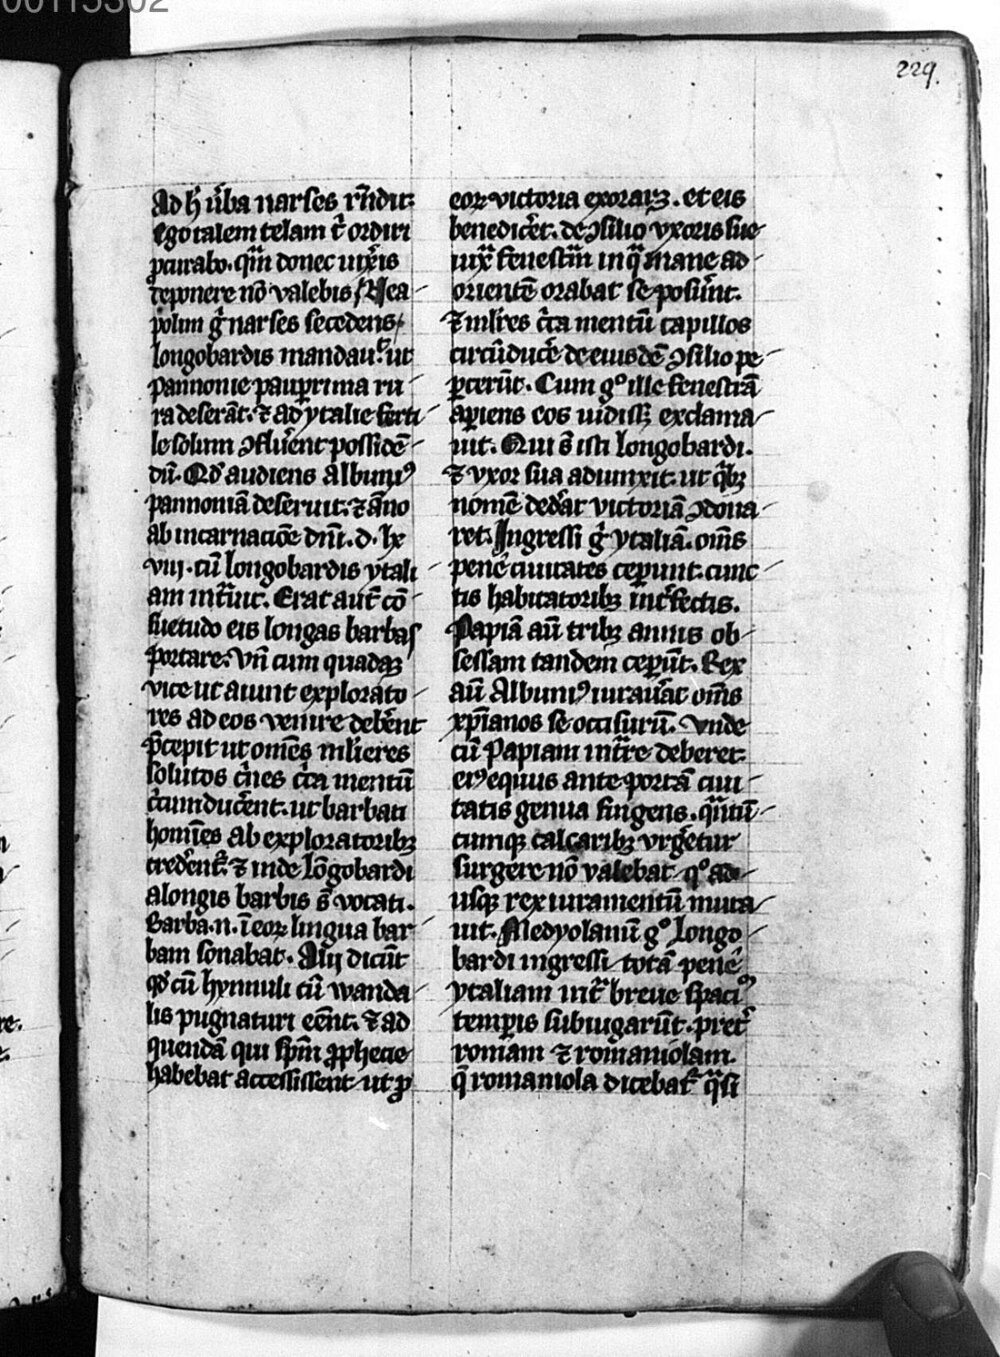 00115302
229.
Ad h̄ v̄ba narses rn̄dit:
Ego talem telam t̄ ordiri
ꝓcurabo. qm̄ donec uix̄is
deponere nō valebis. Nea
polim ḡ narses secedens.
longobardis mandauit ut
pannonie paup̄rima ru
ra deserāt. ⁊ ad ytalie ferti
le solum ꝯflūent possidē
dū. Qd̓ audiens albuinꝰ
pannoniam deseruit. ⁊ āno
ab incarnacōe dn̄i. d. lx
viij. cū longobardis ytali
am int̄uit. Erat aut̄ cō
suetudo eis longas barbas
portare. Vn̄ cum quadaꝫ
vice ut aiunt explorato
res ad eos venire deb̄ent
p̄cepit ut omēs ml̓ieres
solutos c̓nes c̓ca mentū
c̓cumduc̄ent. ut barbati
homīes ab exploratoribꝫ
cred̄ent̄. ⁊ inde lōgobardi
a longis barbis s̄ vocati.
Barba .n. ī eoꝝ lingua bar
bam sonabat. Alij dicūt
qd̓ cū hymnuli cū wanda
lis pugnaturi eēnt. ⁊ ad
quendā qui sp̄m ꝓphecie
habebat accessissent ut ꝓ
eoꝝ victoria exoraꝫ. et eis
benedic̄et. de ꝯsilio vxoris sue
iux̄ fenestm̄ in qͣ mane ad
orientē orabat se posūnt.
⁊ ml̓ires c̓ca mentū capillos
circūduc̄e de eiusdē ꝯsilio pe
p̄cerūt. Cum gͦ ille fenestrā
ap̄iens eos uidissꝫ exclama
uit. Qui s̄ isti longobardi.
⁊ vxor sua adiunxit. ut qͥbꝫ
nomē ded̓at victoriā ꝯdona
ret. Ingressi ḡ ytaliā. om̄s
pene ciuitates cep̄unt. cunc
tis habitatoribꝫ int̓fectis.
Papiā aū tribꝫ annis ob
sessam tandem cep̄ūt. Rex
aū Albuinꝰ iurau̓at om̄s
xp̄ianos se occisurū. Vnde
cū Papiam int̄re deberet.
eiꝰ equus ante portā ciui
tatis genua fingens. qͣntū
cumqꝫ calcaribꝫ vrḡetur
surgere nō valebat qͦ ad
usqꝫ rex iuramentū muta
uit. Medyolanū gͦ Longo
bardi ingressi totā pene
ytaliam int̄ breue spaciꝰ
temp̄is subiugarūt. pret̓
romam ⁊ romaniolam.
q̄ romaniola dicebat̄ qͣsi